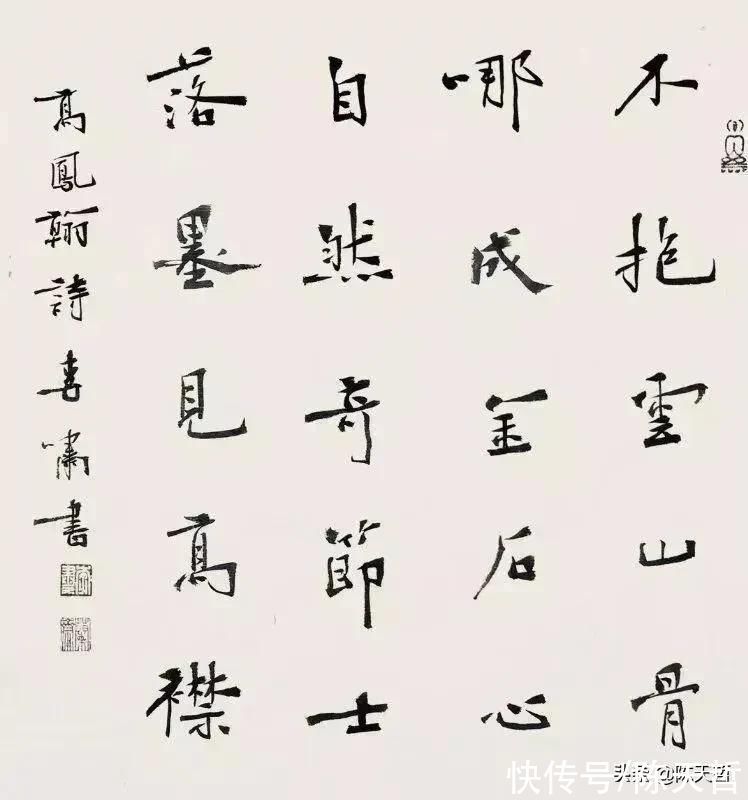 不抱雲山骨
哪成金石心
自然奇節士
落墨見高襟
高鳳翰詩嘯書
头条 @陈天哲
快传号/陈天哲